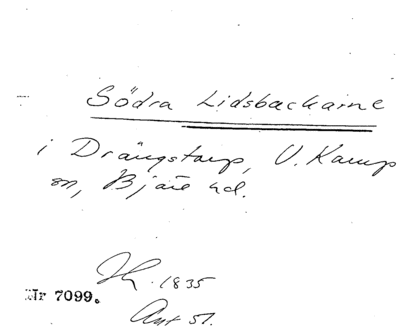 Södra Lidsbackarne
i Drängstorp, V. Karup
sn, Bjäre hd.
Jh. 1835
Nr 7099.
Akt 51.